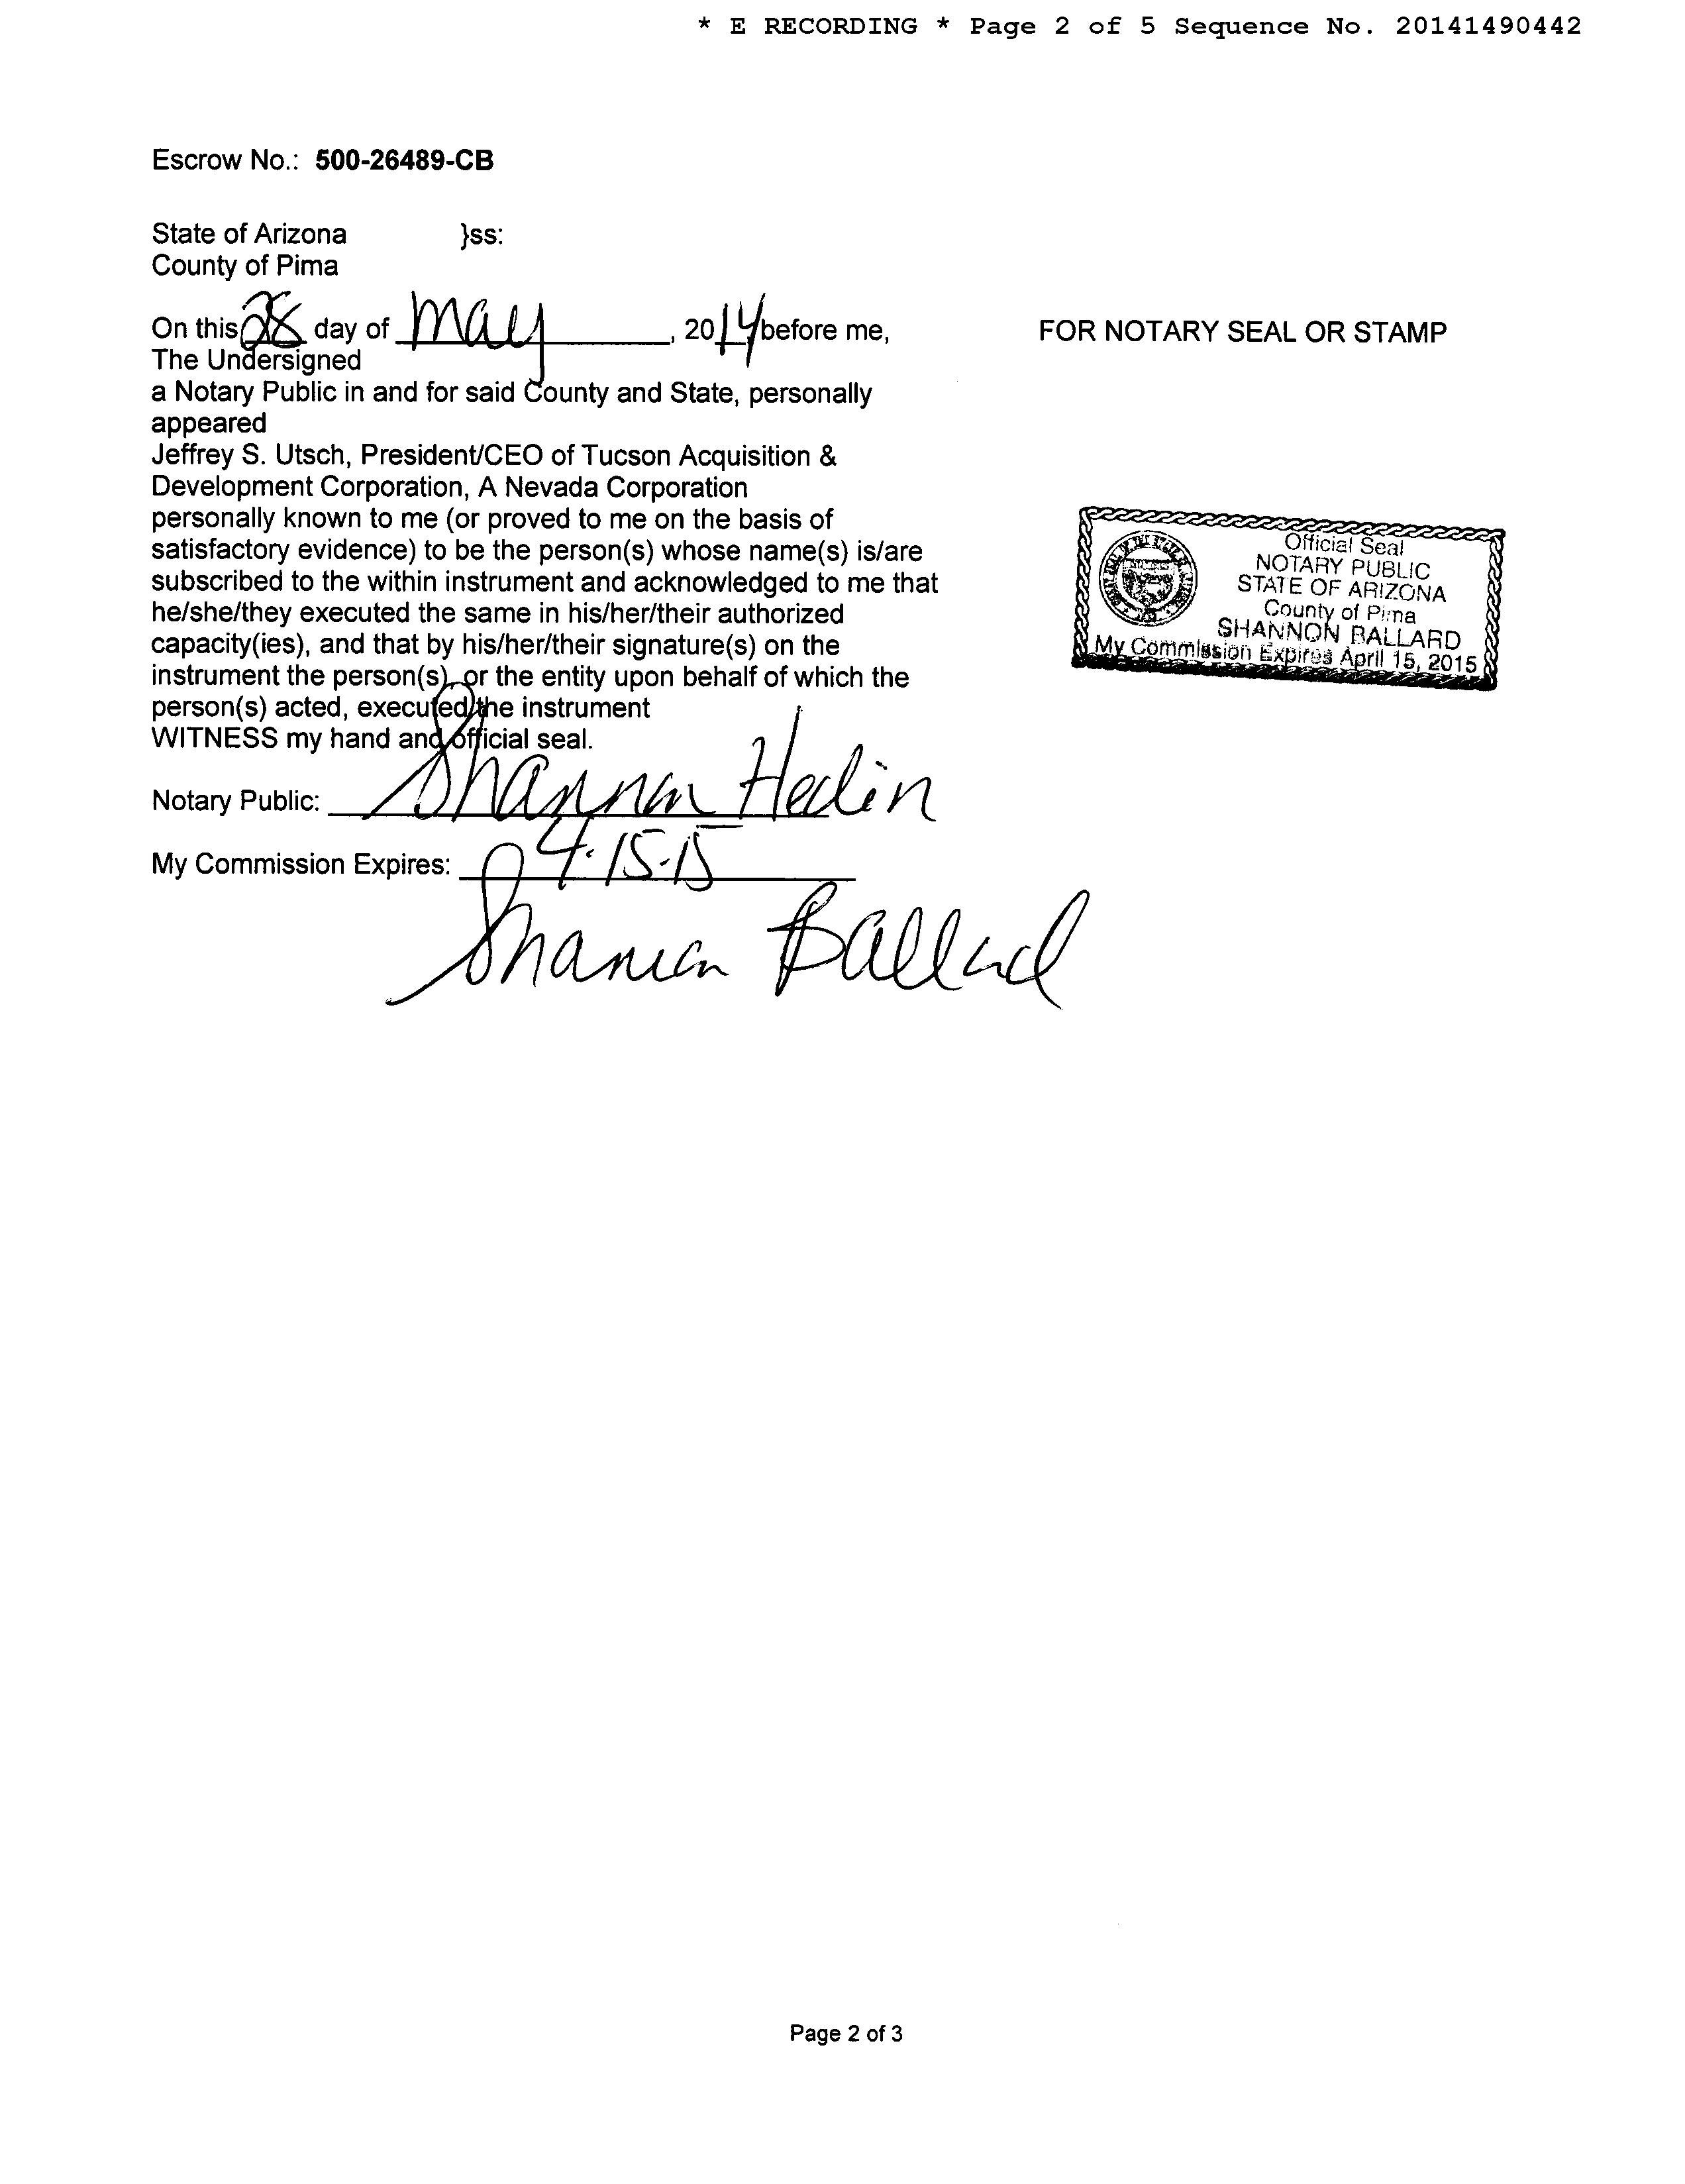 * E RECORDING * Page 2 of 5 Sequence No. 20141490442
Escrow No.: 500-26489-CB
State of Arizona }ss:
County of Pima
On this 28 day of May, 2014 before me,
The Undersigned
a Notary Public in and for said County and State, personally
appeared
Jeffrey S. Utsch, President/CEO of Tucson Acquisition &
Development Corporation, A Nevada Corporation
personally known to me (or proved to me on the basis of
satisfactory evidence) to be the person(s) whose name(s) is/are
subscribed to the within instrument and acknowledged to me that
he/she/they executed the same in his/her/their authorized
capacity(ies), and that by his/her/their signature(s) on the
instrument the person(s), or the entity upon behalf of which the
person(s) acted, executed the instrument
WITNESS my hand and official seal.
Notary Public: Shannon Hedin
My Commission Expires: 4-15-15
Shannon Ballard
FOR NOTARY SEAL OR STAMP
Official Seal
NOTARY PUBLIC
STATE OF ARIZONA
County of Pima
SHANNON BALLARD
My Commission Expires April 15, 2015
Page 2 of 3